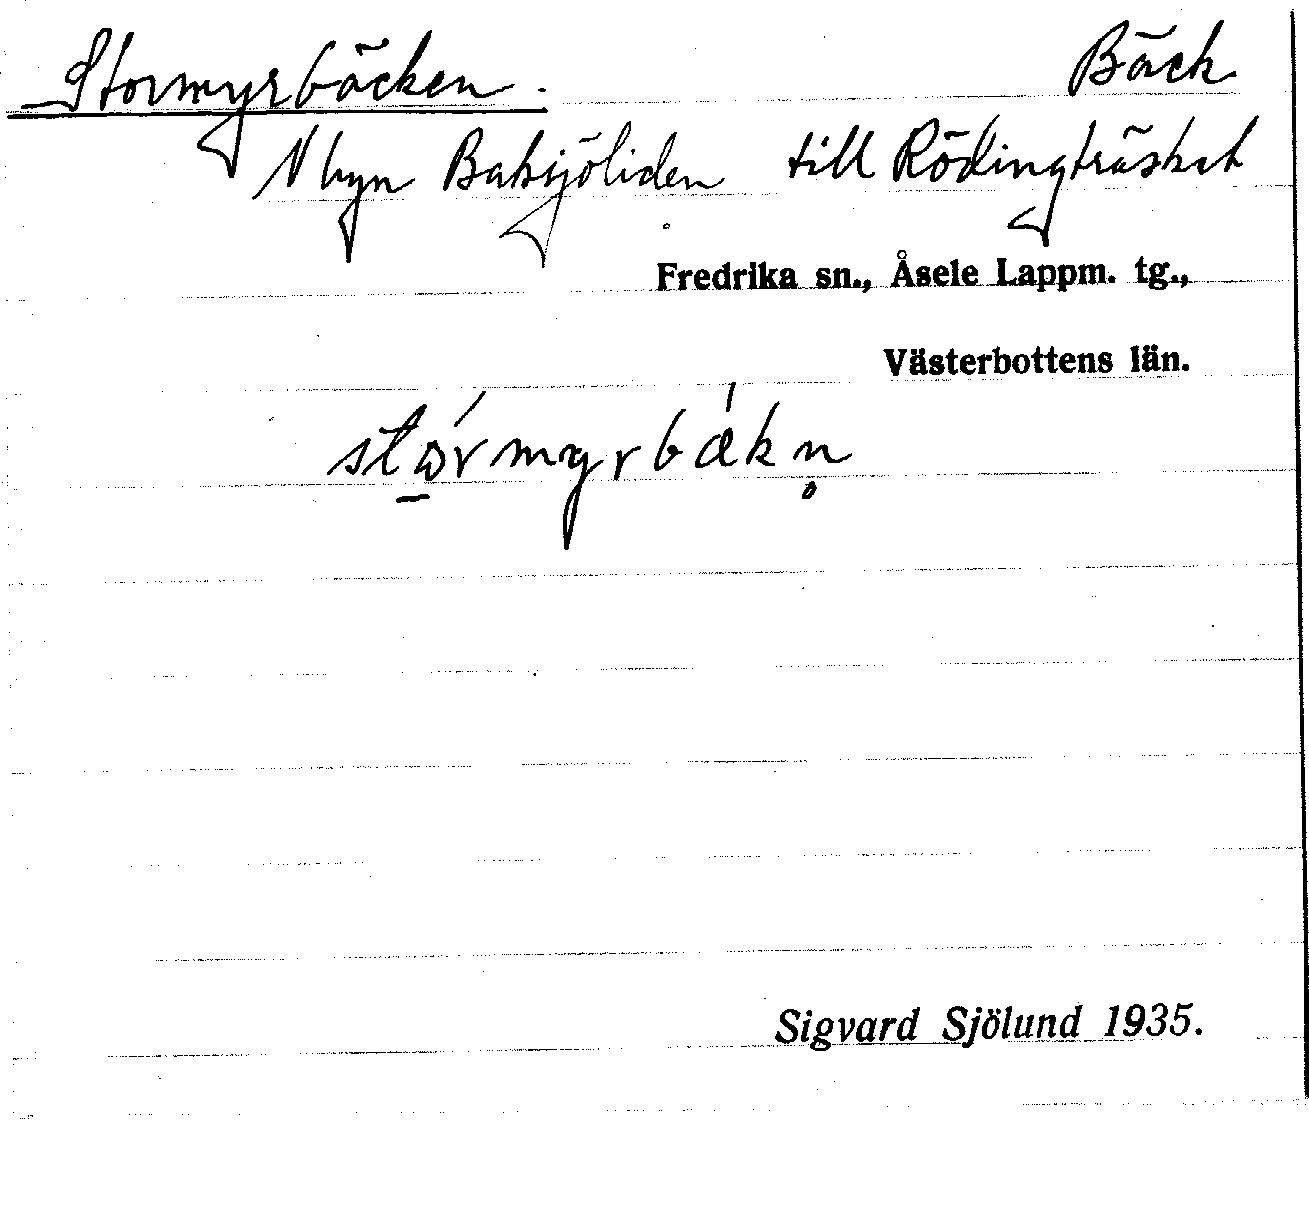 Stormyrbäcken. Bäck
N byn Baksjöliden till Rödingträsket
Fredrika sn., Åsele Lappm. tg.,
Västerbottens län.
stɷ̱́rmyrbǽkn̥
Sigvard Sjölund 1935.